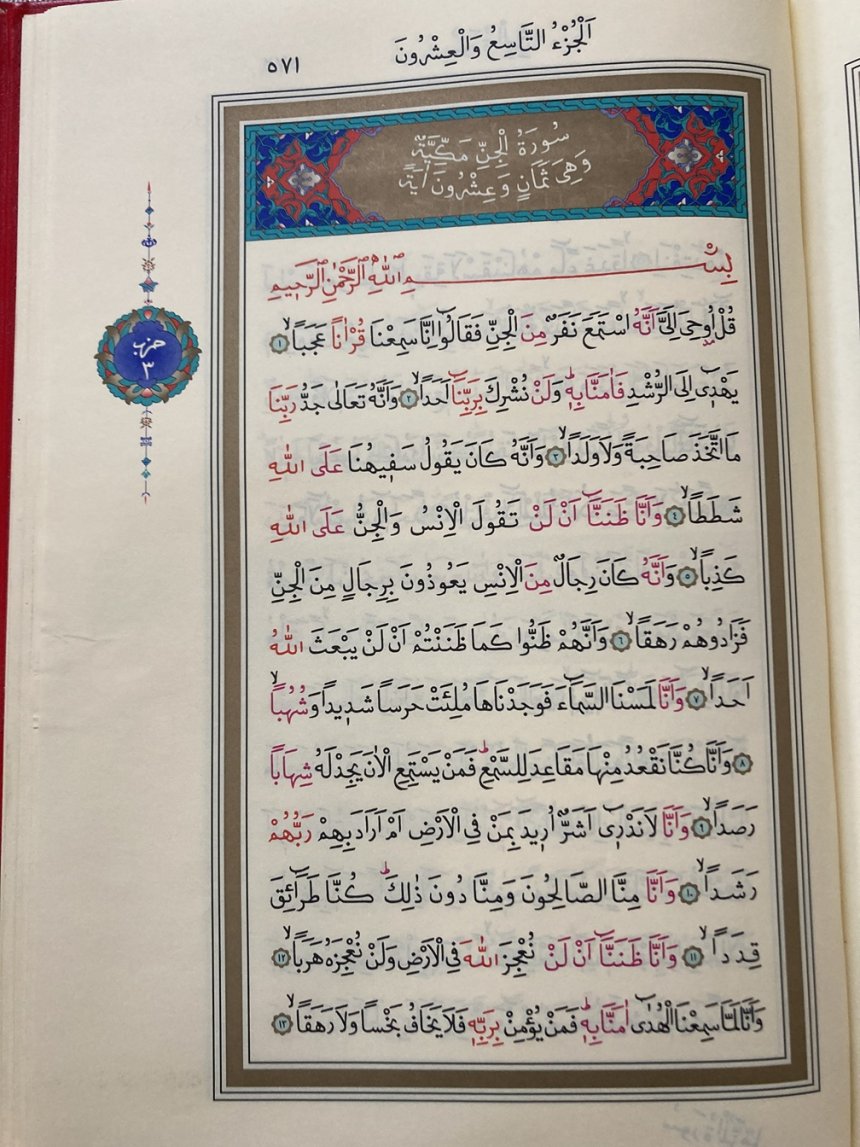 اَلْجُزْءُ التَّاسِعُ وَالْعِشْرُونَ
٥٧١
سُورَةُ الْجِنِّ مَكِّيَّةٌ
وَهِيَ ثَمَانٍ وَعِشْرُونَ اٰيَةً
بِسْمِ اللّٰهِ الرَّحْمٰنِ الرَّحِيمِ
قُلْ اُو۫حِيَ اِلَيَّ اَنَّهُ اسْتَمَعَ نَفَرٌ مِنَ الْجِنِّ فَقَالُٓوا اِنَّا سَمِعْنَا قُرْاٰناً عَجَباًۙ ١
يَهْد۪ٓي اِلَى الرُّشْدِ فَاٰمَنَّا بِه۪ۜ وَلَنْ نُشْرِكَ بِرَبِّنَٓا اَحَداًۙ ٢ وَاَنَّهُ تَعَالٰى جَدُّ رَبِّنَا
مَا اتَّخَذَ صَاحِبَةً وَلَا وَلَداًۙ ٣ وَاَنَّهُ كَانَ يَقُولُ سَف۪يهُنَا عَلَى اللّٰهِ
شَطَطاًۙ ٤ وَاَنَّا ظَنَنَّٓا اَنْ لَنْ تَقُولَ الْاِنْسُ وَالْجِنُّ عَلَى اللّٰهِ
كَذِباًۙ ٥ وَاَنَّهُ كَانَ رِجَالٌ مِنَ الْاِنْسِ يَعُوذُونَ بِرِجَالٍ مِنَ الْجِنِّ
فَزَادُوهُمْ رَهَقاًۙ ٦ وَاَنَّهُمْ ظَنُّوا كَمَا ظَنَنْتُمْ اَنْ لَنْ يَبْعَثَ اللّٰهُ
اَحَداًۙ ٧ وَاَنَّا لَمَسْنَا السَّمَٓاءَ فَوَجَدْنَاهَا مُلِئَتْ حَرَساً شَد۪يداً وَشُهُباًۙ
٨ وَاَنَّا كُنَّا نَقْعُدُ مِنْهَا مَقَاعِدَ لِلسَّمْعِۜ فَمَنْ يَسْتَمِعِ الْاٰنَ يَجِدْ لَهُ شِهَاباً
رَصَداًۙ ٩ وَاَنَّا لَا نَدْر۪ٓي اَشَرٌّ اُر۪يدَ بِمَنْ فِي الْاَرْضِ اَمْ اَرَادَ بِهِمْ رَبُّهُمْ
رَشَداًۙ ١٠ وَاَنَّا مِنَّا الصَّالِحُونَ وَمِنَّا دُونَ ذٰلِكَۜ كُنَّا طَرَٓائِقَ
قِدَداًۙ ١١ وَاَنَّا ظَنَنَّٓا اَنْ لَنْ نُعْجِزَ اللّٰهَ فِي الْاَرْضِ وَلَنْ نُعْجِزَهُ هَرَباًۙ ١٢
وَاَنَّا لَمَّا سَمِعْنَا الْهُدٰٓى اٰمَنَّا بِه۪ۜ فَمَنْ يُؤْمِنْ بِرَبِّه۪ فَلَا يَخَافُ بَخْساً وَلَا رَهَقاًۙ ١٣
حزب
٣